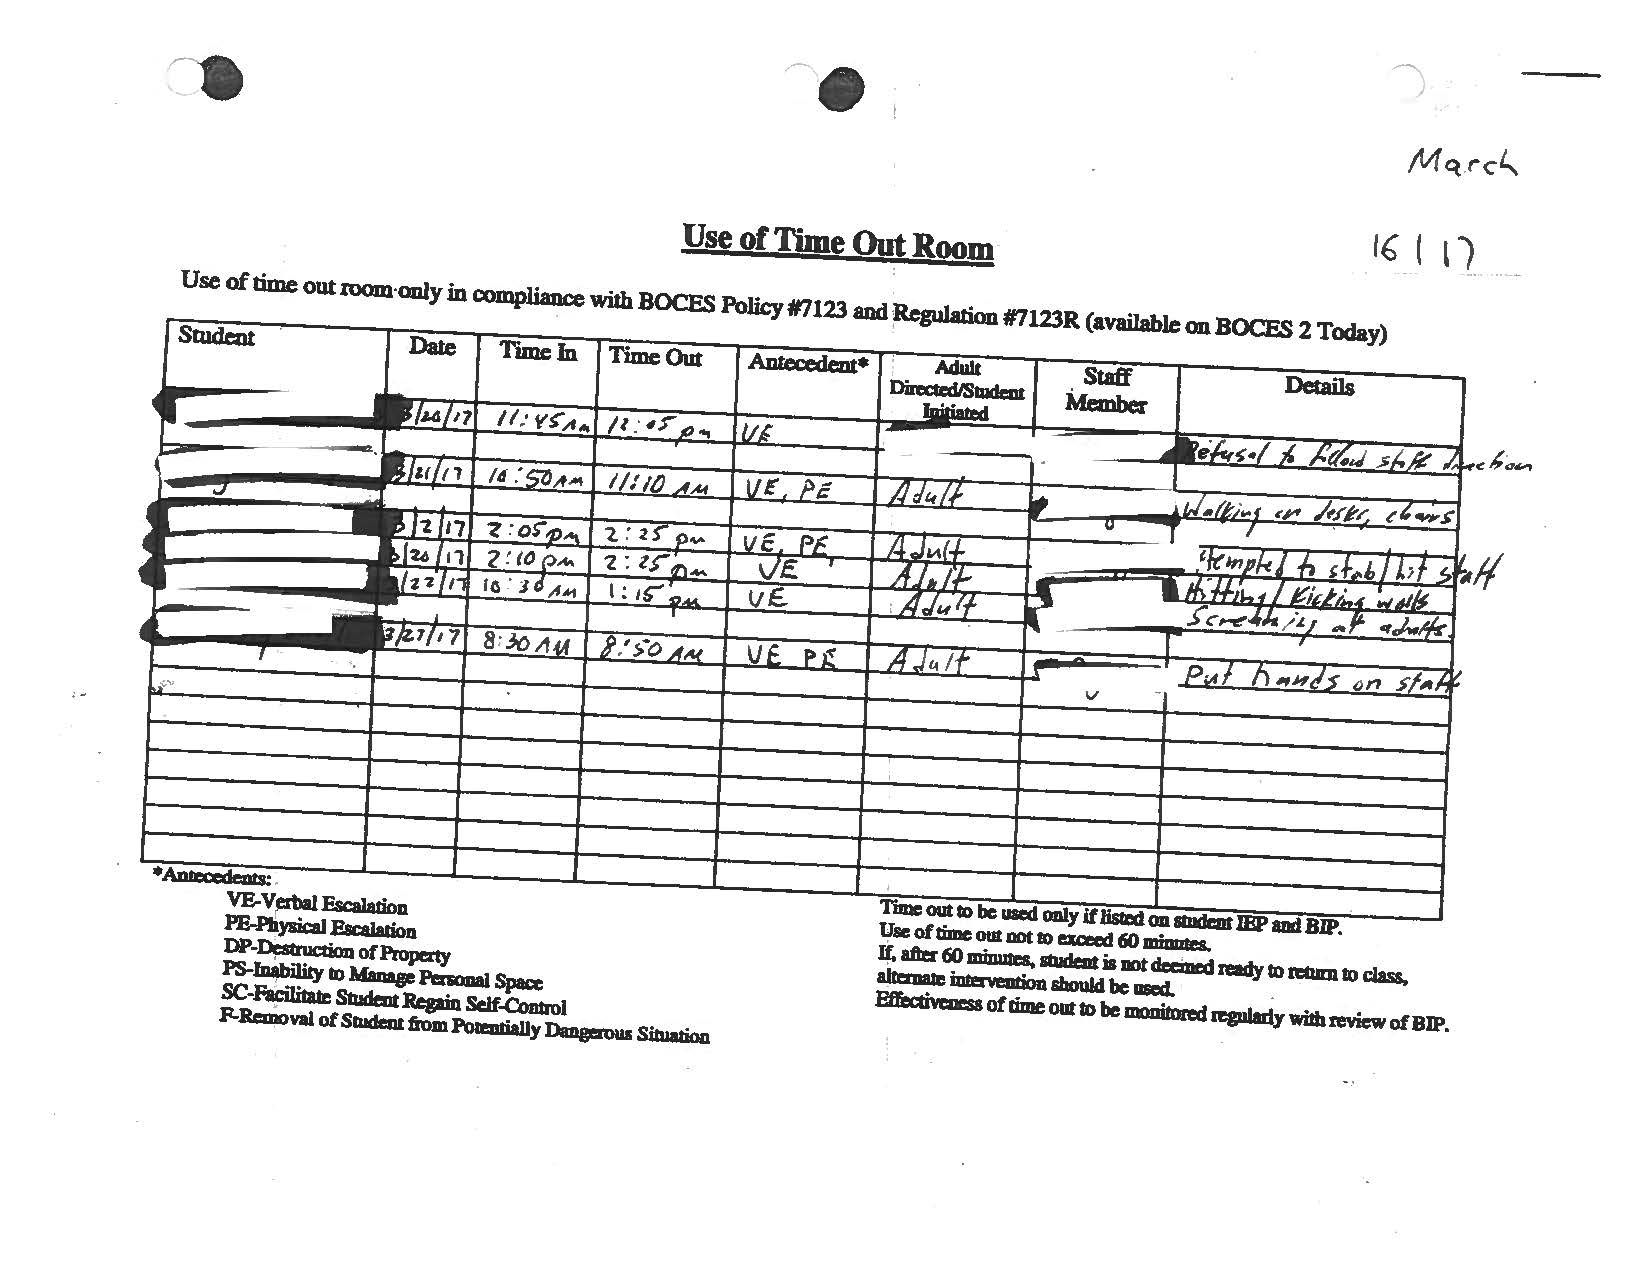 March
16 | 17
Use of Time Out Room
Use of time out room only in compliance with BOCES Policy #7123 and Regulation #7123R (available on BOCES 2 Today)
Student Date Time In Time Out Antecedent* Adult Directed/Student Initiated Staff Member Details
3/20/17 11:45 AM 12:05 pm VE Refusal to follow staff direction
3/21/17 10:50 AM 11:10 AM VE, PE Adult Walking on desks, chairs
2/17 2:05 pm 2:25 pm VE, PE, Adult ttempted to stab/hit staff
3/20/17 2:10 pm 2:25 pm VE Adult Hitting/Kicking walls
3/22/17 10:30 AM 1:15 pm VE Adult Screaming at adults.
3/27/17 8:30 AM 8:50 AM VE PE Adult Put hands on staff
*Antecedents:
VE-Verbal Escalation
PE-Physical Escalation
DP-Destruction of Property
PS-Inability to Manage Personal Space
SC-Facilitate Student Regain Self-Control
F-Removal of Student from Potentially Dangerous Situation
Time out to be used only if listed on student IEP and BIP.
Use of time out not to exceed 60 minutes.
If, after 60 minutes, student is not deemed ready to return to class,
alternate intervention should be used.
Effectiveness of time out to be monitored regularly with review of BIP.